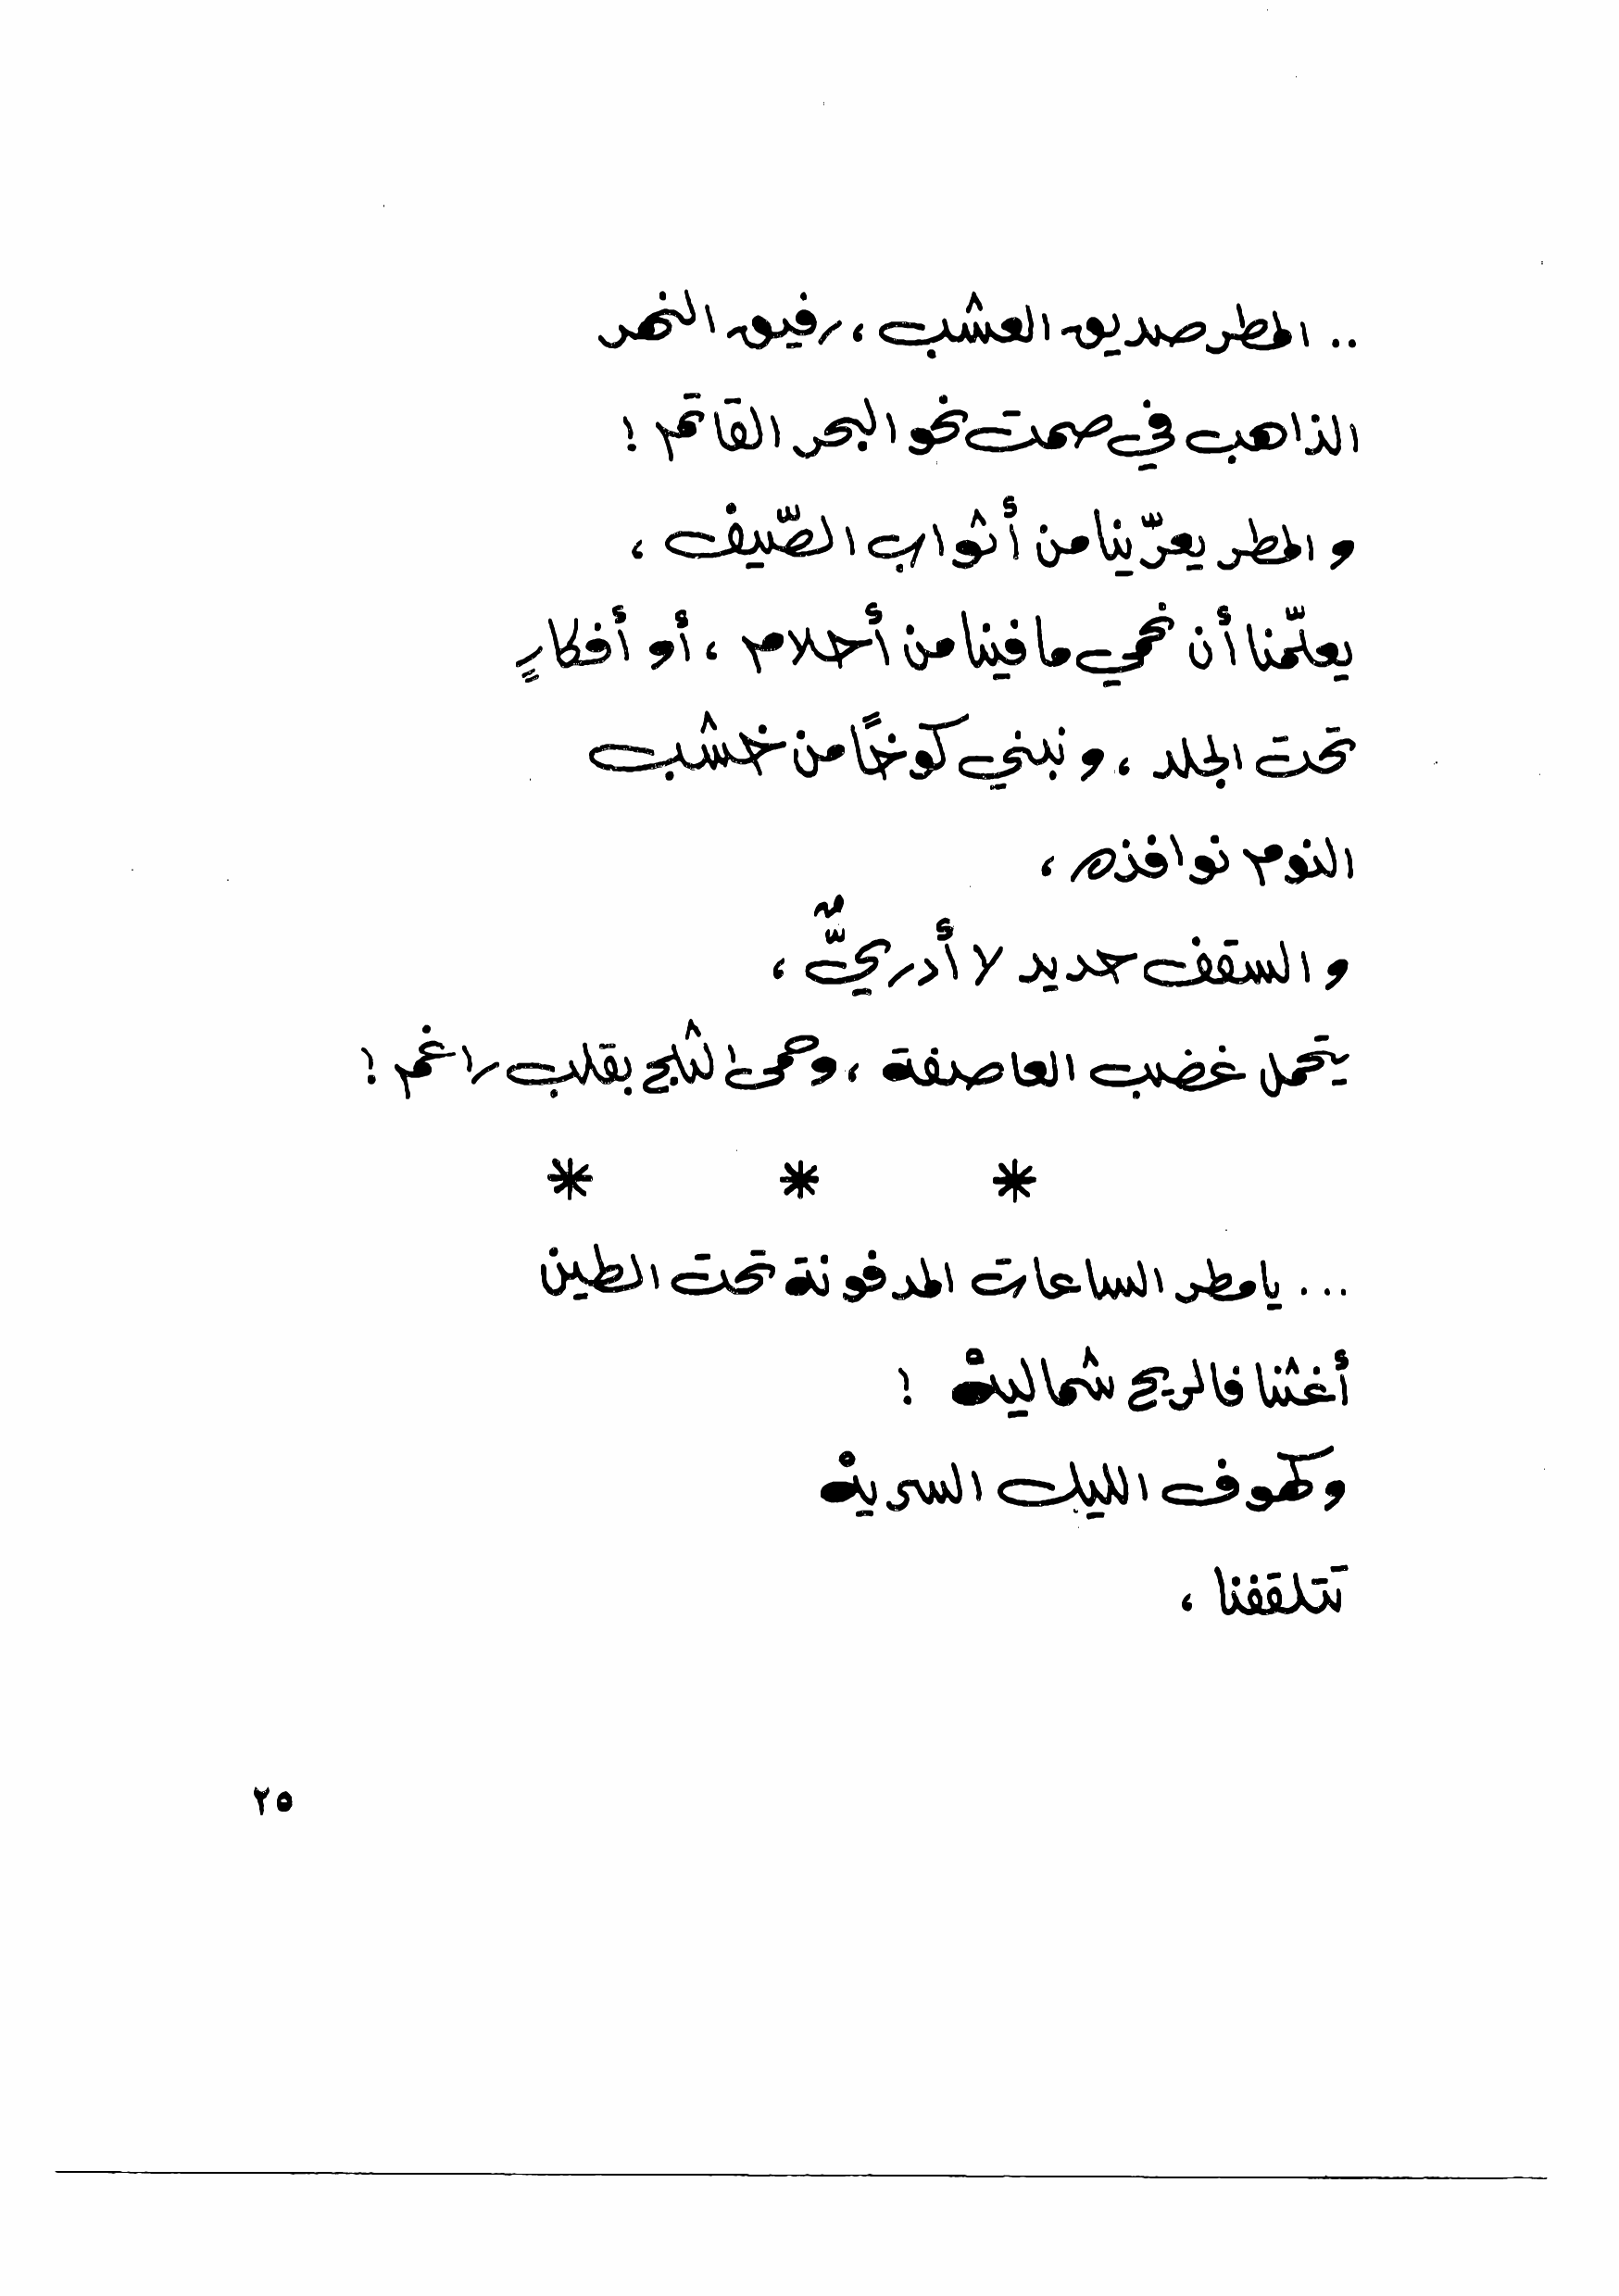 .. المطر صديق العشب ، رفيق النهر
الذاهب في صمت نحو البحر القاتم !
و المطر يعرّينا من أثواب الصّيف ،
يعلّمنا أن نحمي ما فينا من أحلام ، أو أفكارٍ
تحت الجلد ، و نبني كوخًا من خشب
النوم نوافذه ،
و السقف حديد لا أدريٌّ ،
يتحمل غضب العاصفة ، وحمى الثلج بقلب راغم !
* * *
... يا مطر الساعات المدفونة تحت الطين
أغثنا فالريح شماليهْ !
وكهوف الليل السريهْ
تتلقفنا ،
٢٥